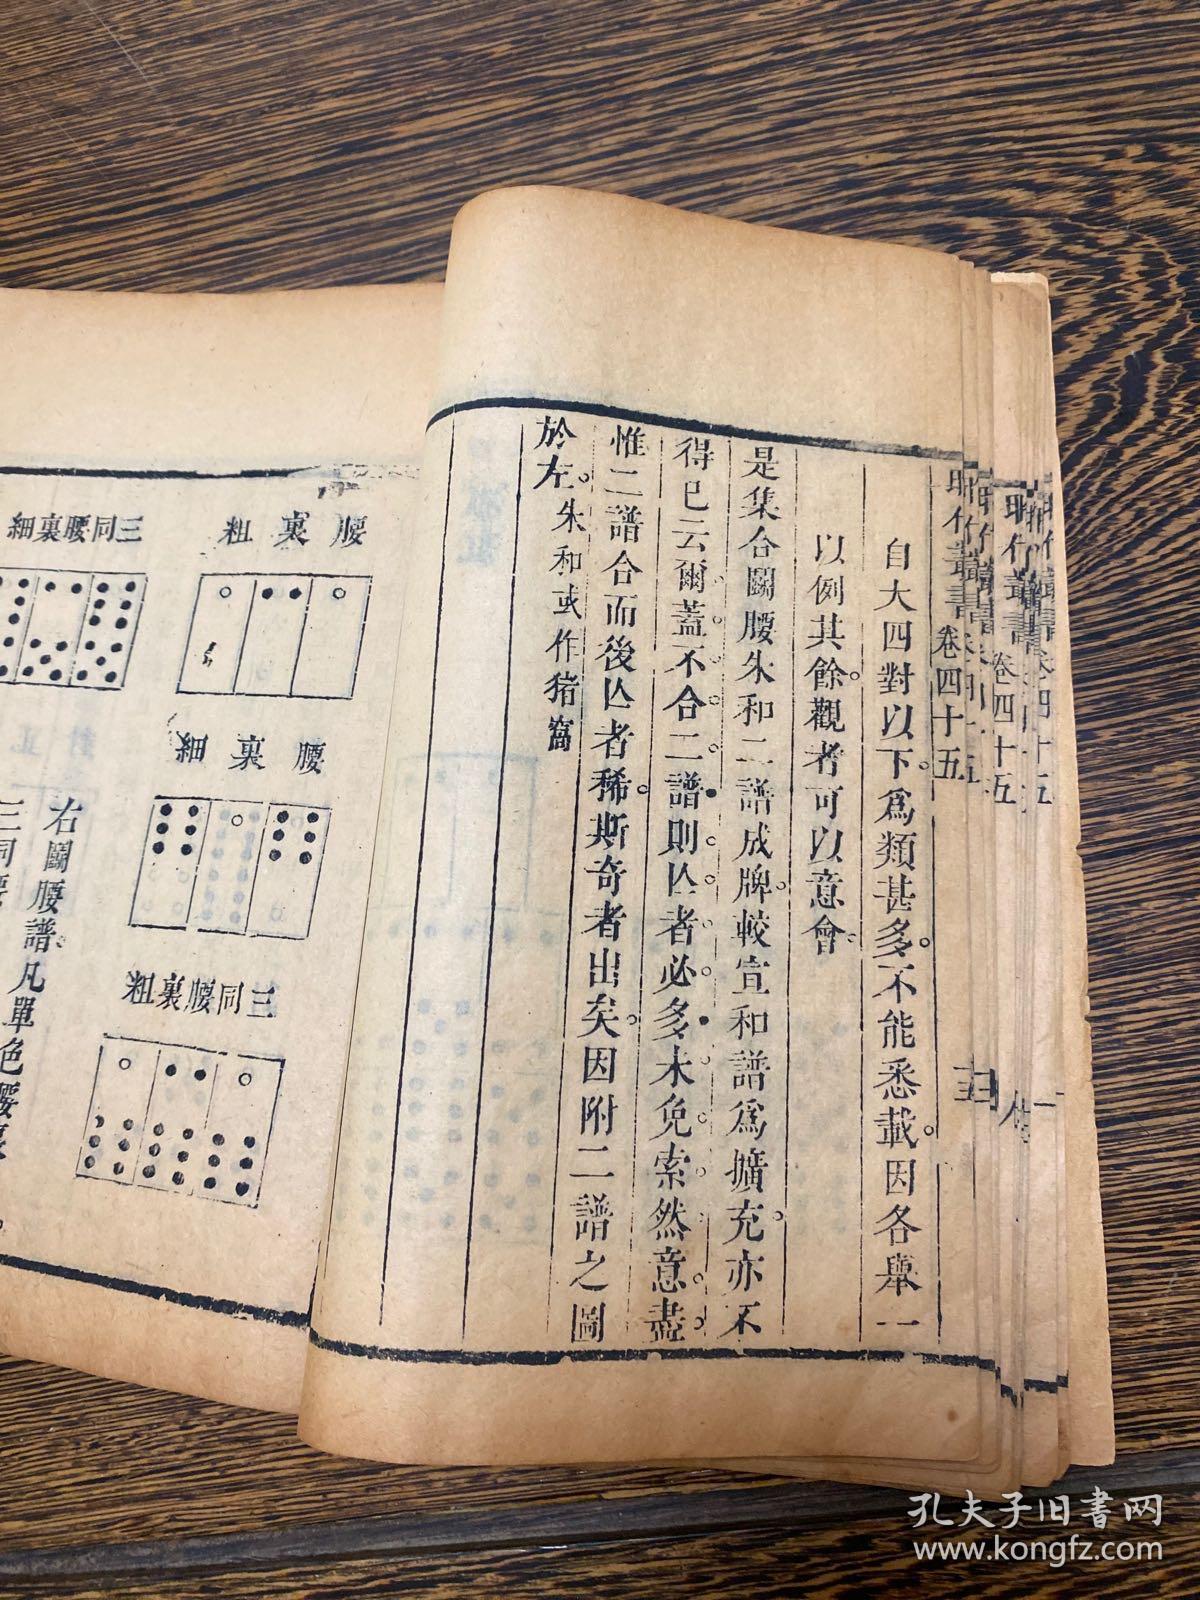 叢書卷四十五
自大四對以下。爲類甚多。不能悉載。因各舉一
以例其餘。觀者可以意會。
是集合鬭腰朱和二譜成牌。較宣和譜爲擴充。亦不
得已云爾。蓋不合二譜。則亾者必多。未免索然意盡。
惟二譜合而後亾者稀。斯奇者出矣。因附二譜之圖
於左。朱和或作猪窩
腰裏粗
三同腰裏細
腰裏細
三同腰裏粗
右鬭腰譜。凡單色腰裏
三同腰